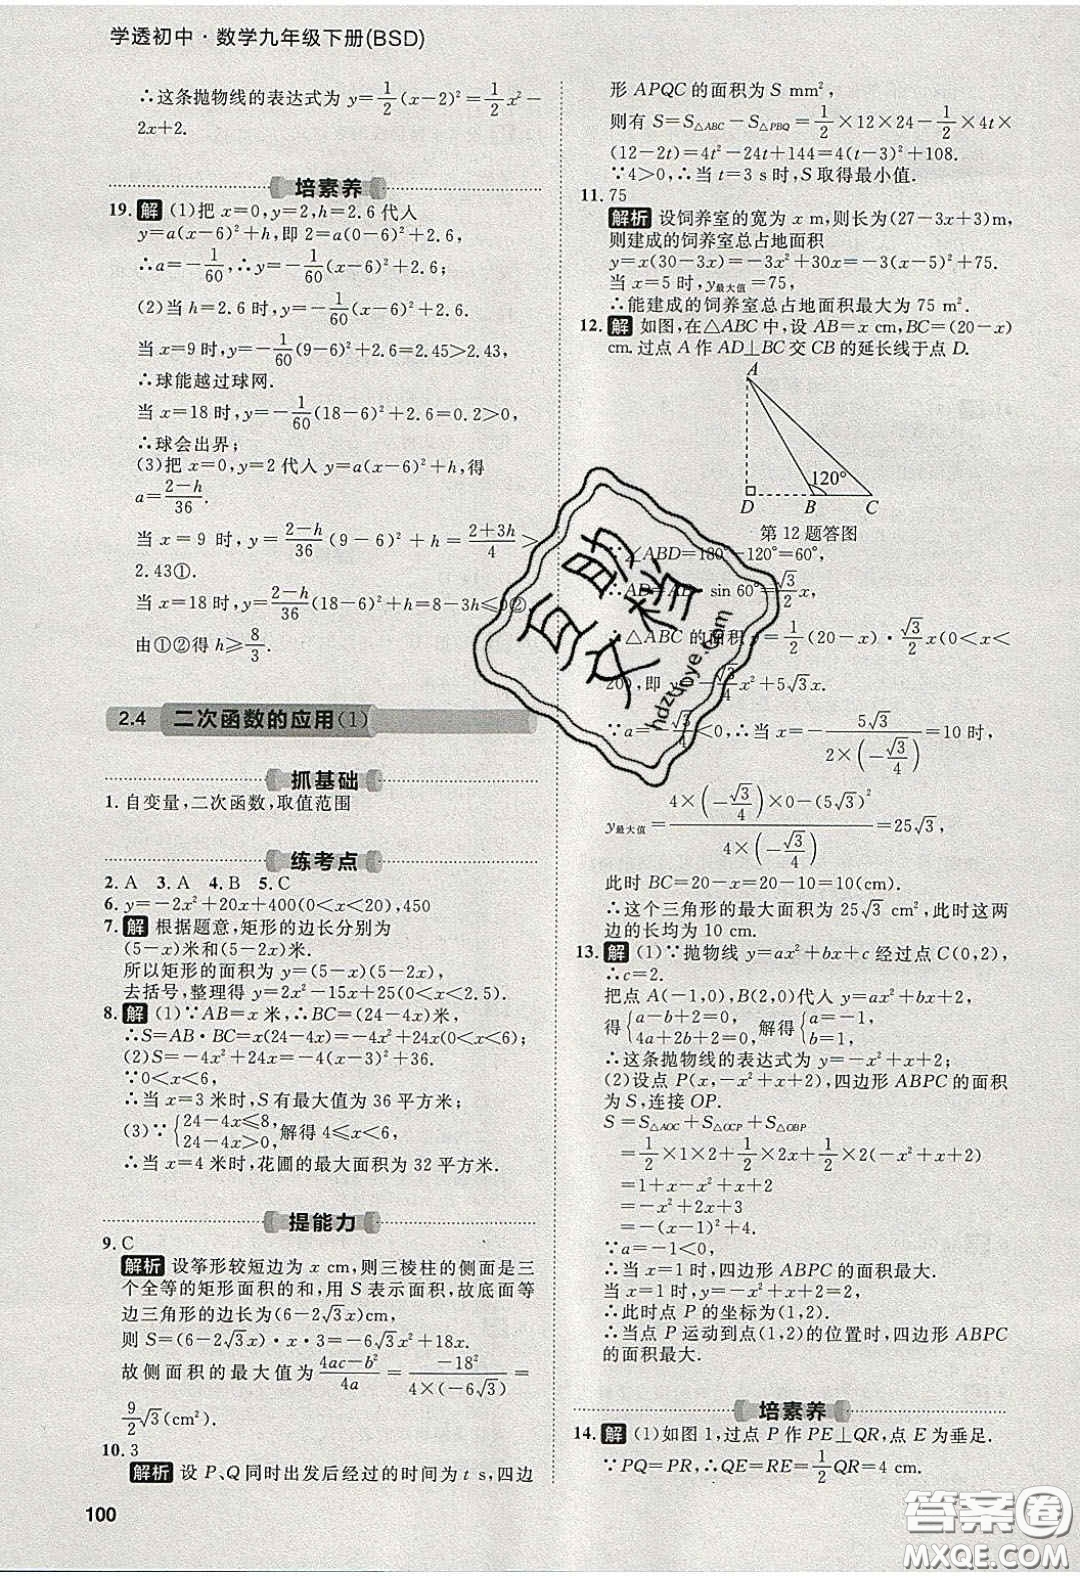 学透初中·数学九年级下册(BSD)
∴这条抛物线的表达式为 y=1/2(x-2)²=1/2x²-
2x+2.
培素养
19. 解 (1)把 x=0,y=2,h=2.6代人
y=a(x-6)²+h,即 2=a(0-6)²+2.6,
∴a=-1/60,∴y=-1/60(x-6)²+2.6.
(2)当 h=2.6 时,y=-1/60(x-6)²+2.6.
当 x=9 时,y=-1/60(9-6)²+2.6=2.45>2.43,
∴球能越过球网.
当 x=18 时,y=-1/60(18-6)²+2.6=0.2>0,
∴球会出界;
(3)把 x=0,y=2 代人 y=a(x-6)²+h,得
a=2-h/36.
当 x=9 时,y=2-h/36(9-6)²+h=2+3h/4>
2.43①.
当 x=18 时,y=2-h/36(18-6)²+h=8-3h≤0②,
由①②得 h≥8/3.
2.4 二次函数的应用(1)
抓基础
1. 自变量,二次函数,取值范围
练考点
2. A 3. A 4. B 5. C
6. y=-2x²+20x+400(0<x<20),450
7. 解 根据题意,矩形的边长分别为
(5-x)米和(5-2x)米.
所以矩形的面积为 y=(5-x)(5-2x),
去括号,整理得 y=2x²-15x+25(0<x<2.5).
8. 解 (1)∵AB=x 米,∴BC=(24-4x)米,
∴S=AB·BC=x(24-4x)=-4x²+24x(0<x<6).
(2)S=-4x²+24x=-4(x-3)²+36.
∵0<x<6,
∴当 x=3 米时,S 有最大值为 36 平方米.
(3)∵{24-4x≤8, 24-4x>0, 解得 4≤x<6,
∴当 x=4 米时,花圃的最大面积为 32 平方米.
提能力
9. C
解析 设筝形较短边为 x cm,则三棱柱的侧面是三
个全等的矩形面积的和,用 S 表示面积,故底面等
边三角形的边长为(6-2√3x)cm,
则 S=(6-2√3x)·x·3=-6√3x²+18x.
故侧面积的最大值为 4ac-b²/4a=-18²/4×(-6√3)=
9/2√3(cm²).
10. 3
解析 设 P、Q 同时出发后经过的时间为 t s,四边
100
形 APQC 的面积为 S mm²,
则有 S=S△ABC-S△PBQ=1/2×12×24-1/2×4t×
(12-2t)=4t²-24t+144=4(t-3)²+108.
∵4>0,∴当 t=3 s时,S 取得最小值.
11. 75
解析 设饲养室的宽为 x m,则长为(27-3x+3)m,
则建成的饲养室总占地面积
y=x(30-3x)=-3x²+30x=-3(x-5)²+75.
当 x=5 时,y最大值=75,
∴能建成的饲养室总占地面积最大为 75 m².
12. 解 如图,在△ABC 中,设 AB=x cm,BC=(20-x)
cm.过点 A 作 AD⊥BC 交 CB 的延长线于点 D.
A
120°
D B C
第12题答图
∵∠ABD=180°-120°=60°,
∴AD=AB·sin 60°=√3/2x,
∴△ABC 的面积 y=1/2(20-x)·√3/2x(0<x<
20),即 y=-√3/4x²+5√3x.
∵a=-√3/4<0,∴当 x=-5√3/2×(-√3/4)=10 时,
y最大值=4×(-√3/4)×0-(5√3)²/4×(-√3/4)=25√3,
此时 BC=20-x=20-10=10(cm).
∴这个三角形的最大面积为 25√3 cm²,此时这两
边的长均为 10 cm.
13. 解 (1)∵抛物线 y=ax²+bx+c 经过点 C(0,2),
∴c=2.
把点 A(-1,0),B(2,0)代人 y=ax²+bx+2,
得{a-b+2=0, 4a+2b+2=0, 解得{a=-1, b=1,
∴这条抛物线的表达式为 y=-x²+x+2;
(2)设点 P(x,-x²+x+2),四边形 ABPC 的面积
为 S,连接 OP.
S=S△AOC+S△OCP+S△OBP
=1/2×1×2+1/2×2x+1/2×2(-x²+x+2)
=1+x-x²+x+2
=-x²+2x+3
=-(x-1)²+4.
∵a=-1<0,
∴当 x=1 时,四边形 ABPC 的面积最大.
当 x=1 时,y=-x²+x+2=2,
∴此时点 P 的坐标为(1,2).
∴当点 P 运动到点(1,2)的位置时,四边形 ABPC
的面积最大.
培素养
14. 解 (1)如图 1,过点 P 作 PE⊥QR,点 E 为垂足.
∵PQ=PR,∴QE=RE=1/2QR=4 cm.
互助文档
hdzuoye.com
答案圈
MXQE.COM